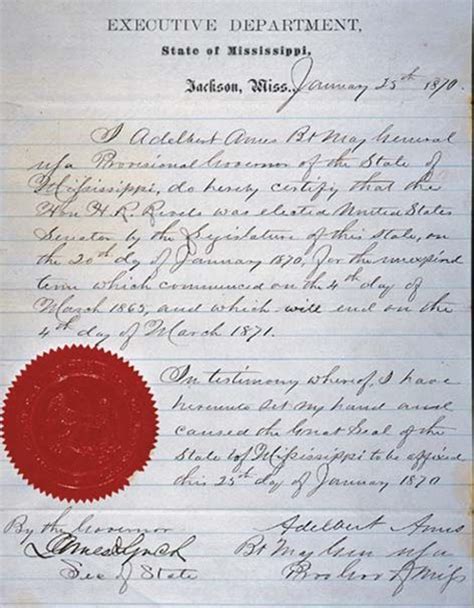 EXECUTIVE DEPARTMENT,
State of Mississippi,
Jackson, Miss., January 25th 1870.
I Adelbert Ames Bt Maj General
USA Provisional Governor of the State of
Mississippi, do hereby certify that the
Hon H. R. Revels was elected United States
Senator by the Legislature of this state, on
the 20th dy of January 1870, for the unexpired
term which commenced on the 4th day of
March 1865, and which will end on the
4th day of March 1871.
In testimony whereof, I have
hereunto set my hand and
caused the Great Seal of the
State of Mississippi to be affixed
this 25th day of January 1870
Adelbert Ames
Bt Maj Gen USA
Pro Gov of Miss
By the Governor
James Lynch
Sec of State